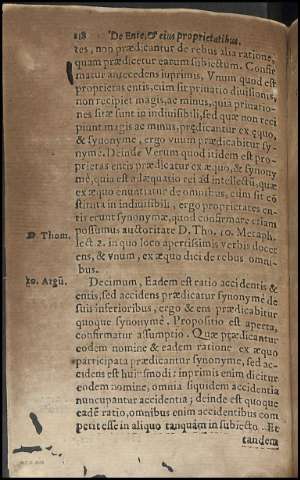 218 De Ente, & eius proprietatibus.
tes, non prædicantur de rebus alia ratione,
quam prædicetur earum subiectum. Confir
matur antecedens inprimis, Vnum quod est
proprietas entis, cum sit priuatio diuisionis,
non recipiet magis, ac minus, quia priuatio-
nes sitæ sunt in indiuisibili, sed quæ non reci
piunt magis ac minus, prędicantur ex ęquo,
& synonyme, ergo vnum prædicabitur sy-
nymè. Deinde Verum quod itidem est pro-
prietas entis prædicatur ex æquo, & synony
mè, quia est adæquatio rei ad intellectũ, quæ
ex æquo enuntiatur de omnibus, cum sit cõ
stituta in indiuisibili, ergo proprietates en-
tis erunt synonymæ, quod confirmare etiam
D. Thom. possumus auctoritate D. Tho. 10. Metaph.
lect 2. in quo loco apertissimis verbis docet
ens, & vnum, ex æquo dici de rebus omni-
bus.
10. Argũ. Decimum, Eadem est ratio accidentis &
entis, sed accidens prædicatur synonymè de
suis inferioribus, ergo & ens prædicabitur
quoque synonymè. Propositio est aperta,
confirmatur assumptio. Quæ prædicantur
eodem nomine & eadem ratione ex æquo
participata prædicantur synonyme, sed ac-
cidens est huiusmodi: inprimis enim dicitur
eodem nomine, omnia siquidem accidentia
nuncupantur accidentia; deinde est quoque
eadē ratio, omnibus enim accidentibus com
petit esse in aliquo tanquàm in subiecto. Et
tandem